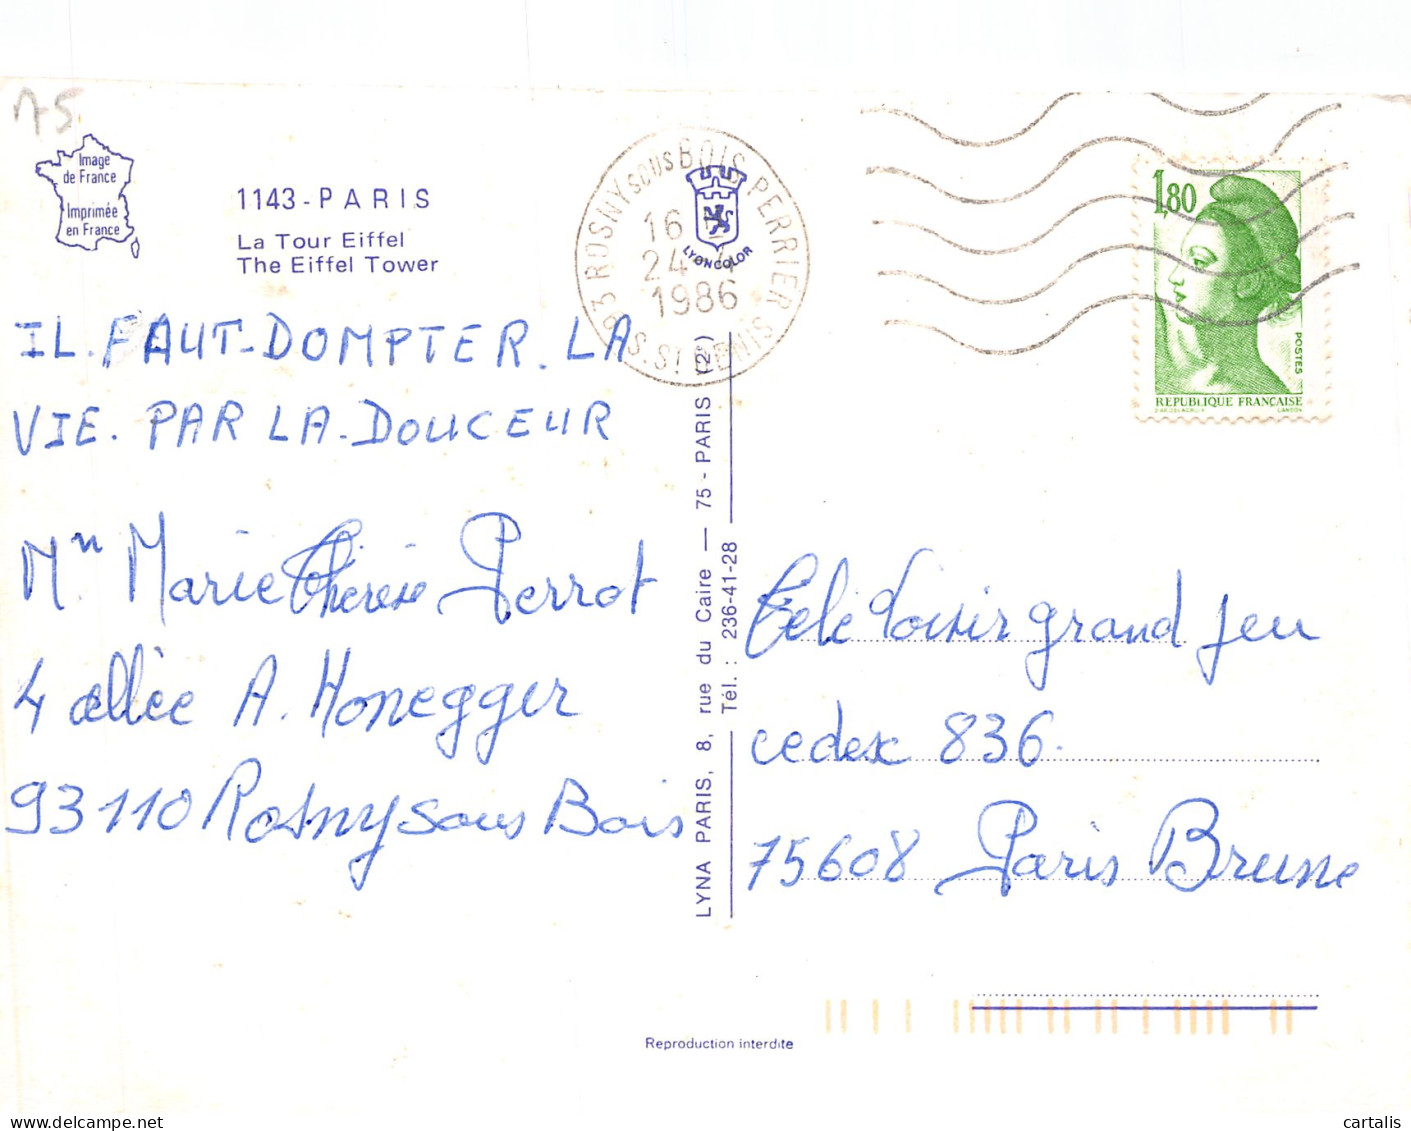 75
Image
de France
Imprimée
en France
1143 - PARIS
La Tour Eiffel
The Eiffel Tower
93 ROSNY SOUS BOIS PERRIER
S. ST DENIS
16
24 - 4
1986
LYONCOLOR
1,80
POSTES
REPUBLIQUE FRANÇAISE
IL. FAUT-DOMPTER. LA
VIE. PAR LA-DOUCEUR
Mn Marie Thérèse Perrot
4 allée A. Honegger
93110 Rosny sous Bois
LYNA PARIS, 8, rue du Caire — 75 - PARIS (2e)
Tél. : 236-41-28
Télé Loisir grand jeu
cedex 836.
75608 Paris Brune
Reproduction interdite
cartalis
delcampe.net